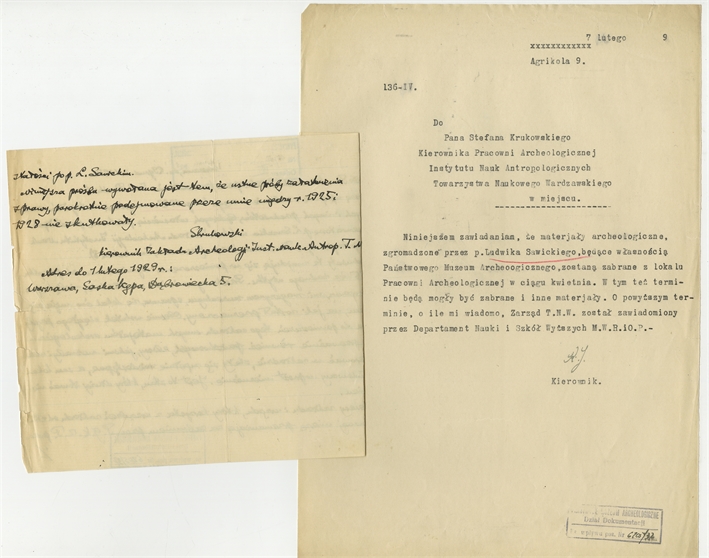 po p. L. Sawickim.
Niniejsza prośba wywołana jest tem, że ustne próby załatwienia
sprawy, parokrotnie podejmowane przeze mnie między r. 1925 i
1928 nie skutkowały.
Krukowski
kierownik Zakładu Archeologji Inst. nauk Antrop. T. N
Adres do 1 lutego 1929 r.:
Warszawa, Saska Kępa, Dąbrowiecka 5.
7 lutego 9
xxxxxxxxxxxx
Agrikola 9.
136-IV.
Do
Pana Stefana Krukowskiego
Kierownika Pracowni Archeologicznej
Instytutu Nauk Antropologicznych
Towarzystwa Naukowego Wardzawskiego
w miejscu.
Niniejszem zawiadaniam, że materjały archeologiczne,
zgromadzone przez p. Ludwika Sawickiego, będące własnością
Państwowego Museum Archeoogocznego, zostaną zabrane z lokalu
Pracowni Archeologicznej w ciągu kwietnia. W tym teć termi-
nie będą mogły być zabrane i inne materjały. O powyższym ter-
minie, o ile mi wiadomo, Zarząd T.N.W. został zawiadomiony
przez Departament Nauki i Szkół Wyższych M.W.R.iO.P.-
Kierownik.
MUZEUM ARCHEOLOGICZNE
Dział Dokumentacji